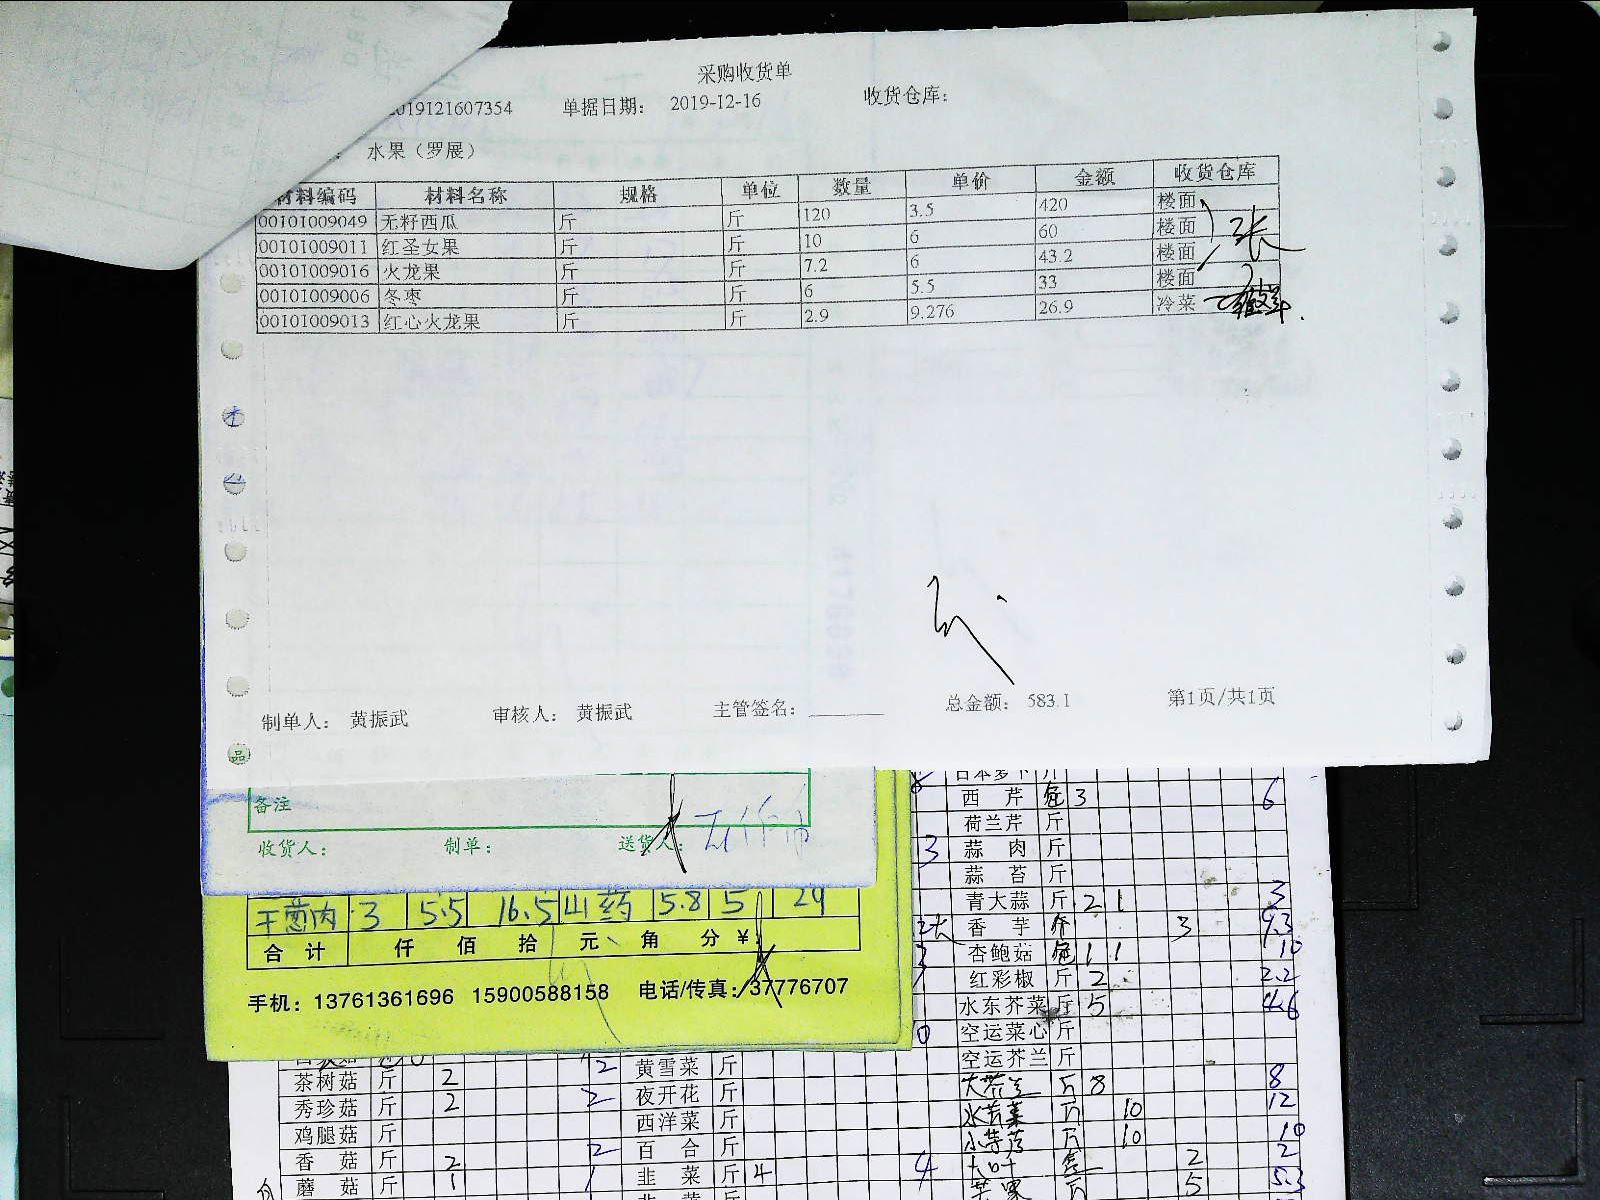 采购收货单
2019121607354 单据日期： 2019-12-16 收货仓库：
： 水果（罗展）
材料编码 材料名称 规格 单位 数量 单价 金额 收货仓库
00101009049 无籽西瓜 斤 斤 120 3.5 420 楼面
00101009011 红圣女果 斤 斤 10 6 60 楼面
00101009016 火龙果 斤 斤 7.2 6 43.2 楼面
00101009006 冬枣 斤 斤 6 5.5 33 楼面
00101009013 红心火龙果 斤 斤 2.9 9.276 26.9 冷菜
张
制单人： 黄振武 审核人： 黄振武 主管签名： 总金额： 583.1 第1页/共1页
备注
收货人： 制单： 送货人：
干葱肉 3 5.5 16.5 山药 5.8 5 29
合计 仟 佰 拾 元 角 分 ¥
手机：13761361696 15900588158 电话/传真：37776707
日本萝卜 斤
西芹 包 3 6
荷兰芹 斤
3 蒜肉 斤
蒜苔 斤
青大蒜 斤 2 1 3
香芋 斤 3 9.3
杏鲍菇 包 1 1 10
红彩椒 斤 2 2.2
水东芥菜 斤 5 4.6
空运菜心 斤
空运芥兰 斤
茶树菇 斤 2 2 黄雪菜 斤
秀珍菇 斤 2 2 夜开花 斤
鸡腿菇 斤 西洋菜 斤
香菇 斤 2 2 百合 斤
蘑菇 斤 1 1 韭菜 斤 4 4
大芥兰 斤 8 8
斤 10 12
斤 10 10
大叶 2 2
苹果 斤 5 5.3